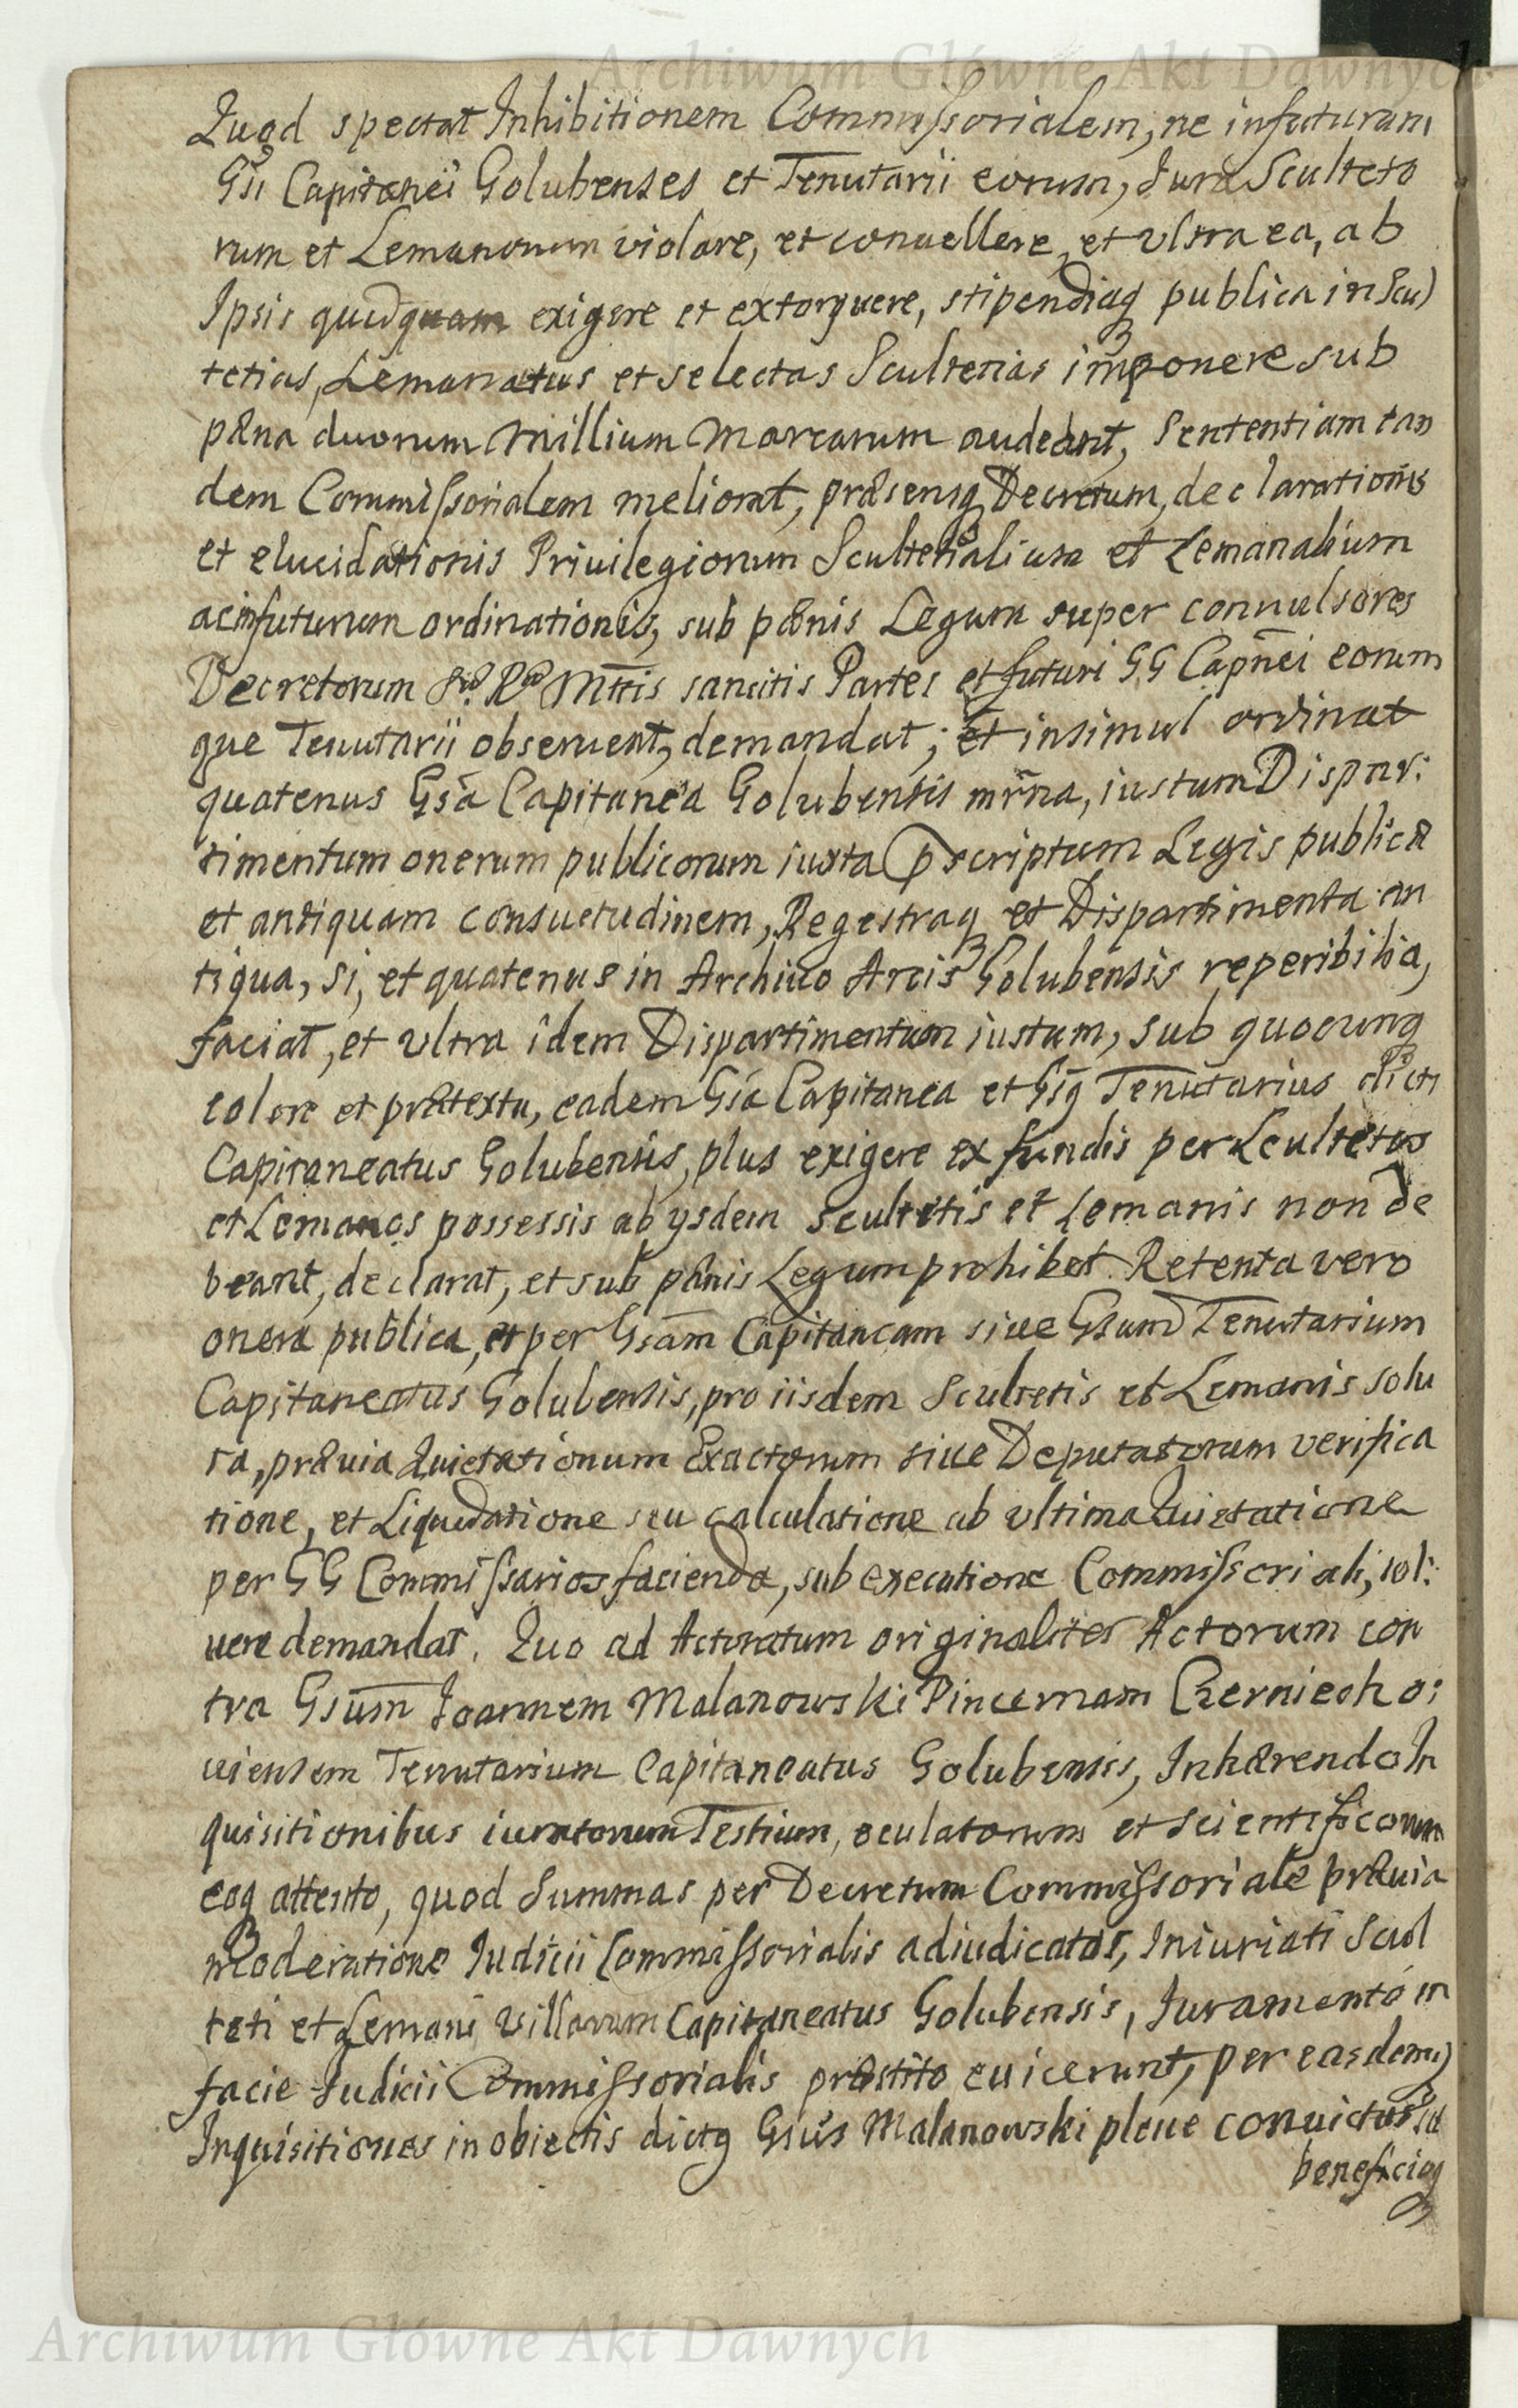 Archiwum Główne Akt Dawnych
Quod spectat Inhibitionem Commissorialem, ne infuturum
Gsi Capitanei Golubenses et Tenutarii eorum, Iura Sculteto
rum et Lemanorum violare, et conuellere, et vltra ea, ab
Ipsis quidquam exigere et extorquere, stipendiaq publica in Scul
tetias, Lemanatus et selectas Scultetias imponere sub
pæna duorum Millium Marcarum audeant, Sententiam ean
dem Commissorialem meliorat, præsensq Decretum, declarationis
et elucidationis Priuilegiorum Scultetialium et Lemanalium
ac infuturum ordinationis, sub pænis Legum super conuulsores
Decretorum Sræ Ræ Mttis sancitis Partes et futuri GG Capnei eorum
que Tenutarii obseruent, demandat; Et insimul ordinat
quatenus Gsa Capitanea Golubensis mrna, iustum Dispar:
timentum onerum publicorum iuxta pscriptum Legis publicæ
et antiquam consuetudinem, Regestraq et Dispartimenta an
tiqua, si, et quatenus in Archiuo Arcis Golubensis reperibilia,
faciat, et vltra idem Dispartimentum iustum, sub quocunq
colore et prætextu, eadem Gsa Capitanea et Gsq Tenutarius dicti
Capitaneatus Golubensis, plus exigere ex fundis per Scultetos
et Lemanos possessis ab ysdem Scultetis et Lemanis non de
beant, declarat, et sub pænis Legum prohibet. Retenta vero
onera publica, et per Gsam Capitaneam siue Gsum Tenutarium
Capitaneatus Golubensis, pro iisdem Scultetis et Lemanis solu
ta, præuia Quietationum Exactorum siue Deputatorum verifica
tione, et Liquidatione seu calculatione ab vltima Quietatione
per GG Commissarios facienda, sub executione Commissoriali, sol:
uere demandat. Quo ad Actoratum originaliter Actorum con
tra Gsum Joannem Malanowski Pincernam Czerniecho:
uiensem Tenutarium Capitaneatus Golubensis, Inhærendo In
quisitionibus iuratorum Testium, oculatorum et scientificorum
eoq attento, quod Summas per Decretum Commissoriale præuia
moderatione Iudicii Commissorialis adiudicatas, Iniuriati Scul
teti et Lemani Villarum Capitaneatus Golubensis, Iuramento in
facie Iudicii Commissorialis præstito euicerunt, per easdemq
Inquisitiones in obiectis dictq Gsus Malanowski plene conuictus
beneficioq
Archiwum Główne Akt Dawnych